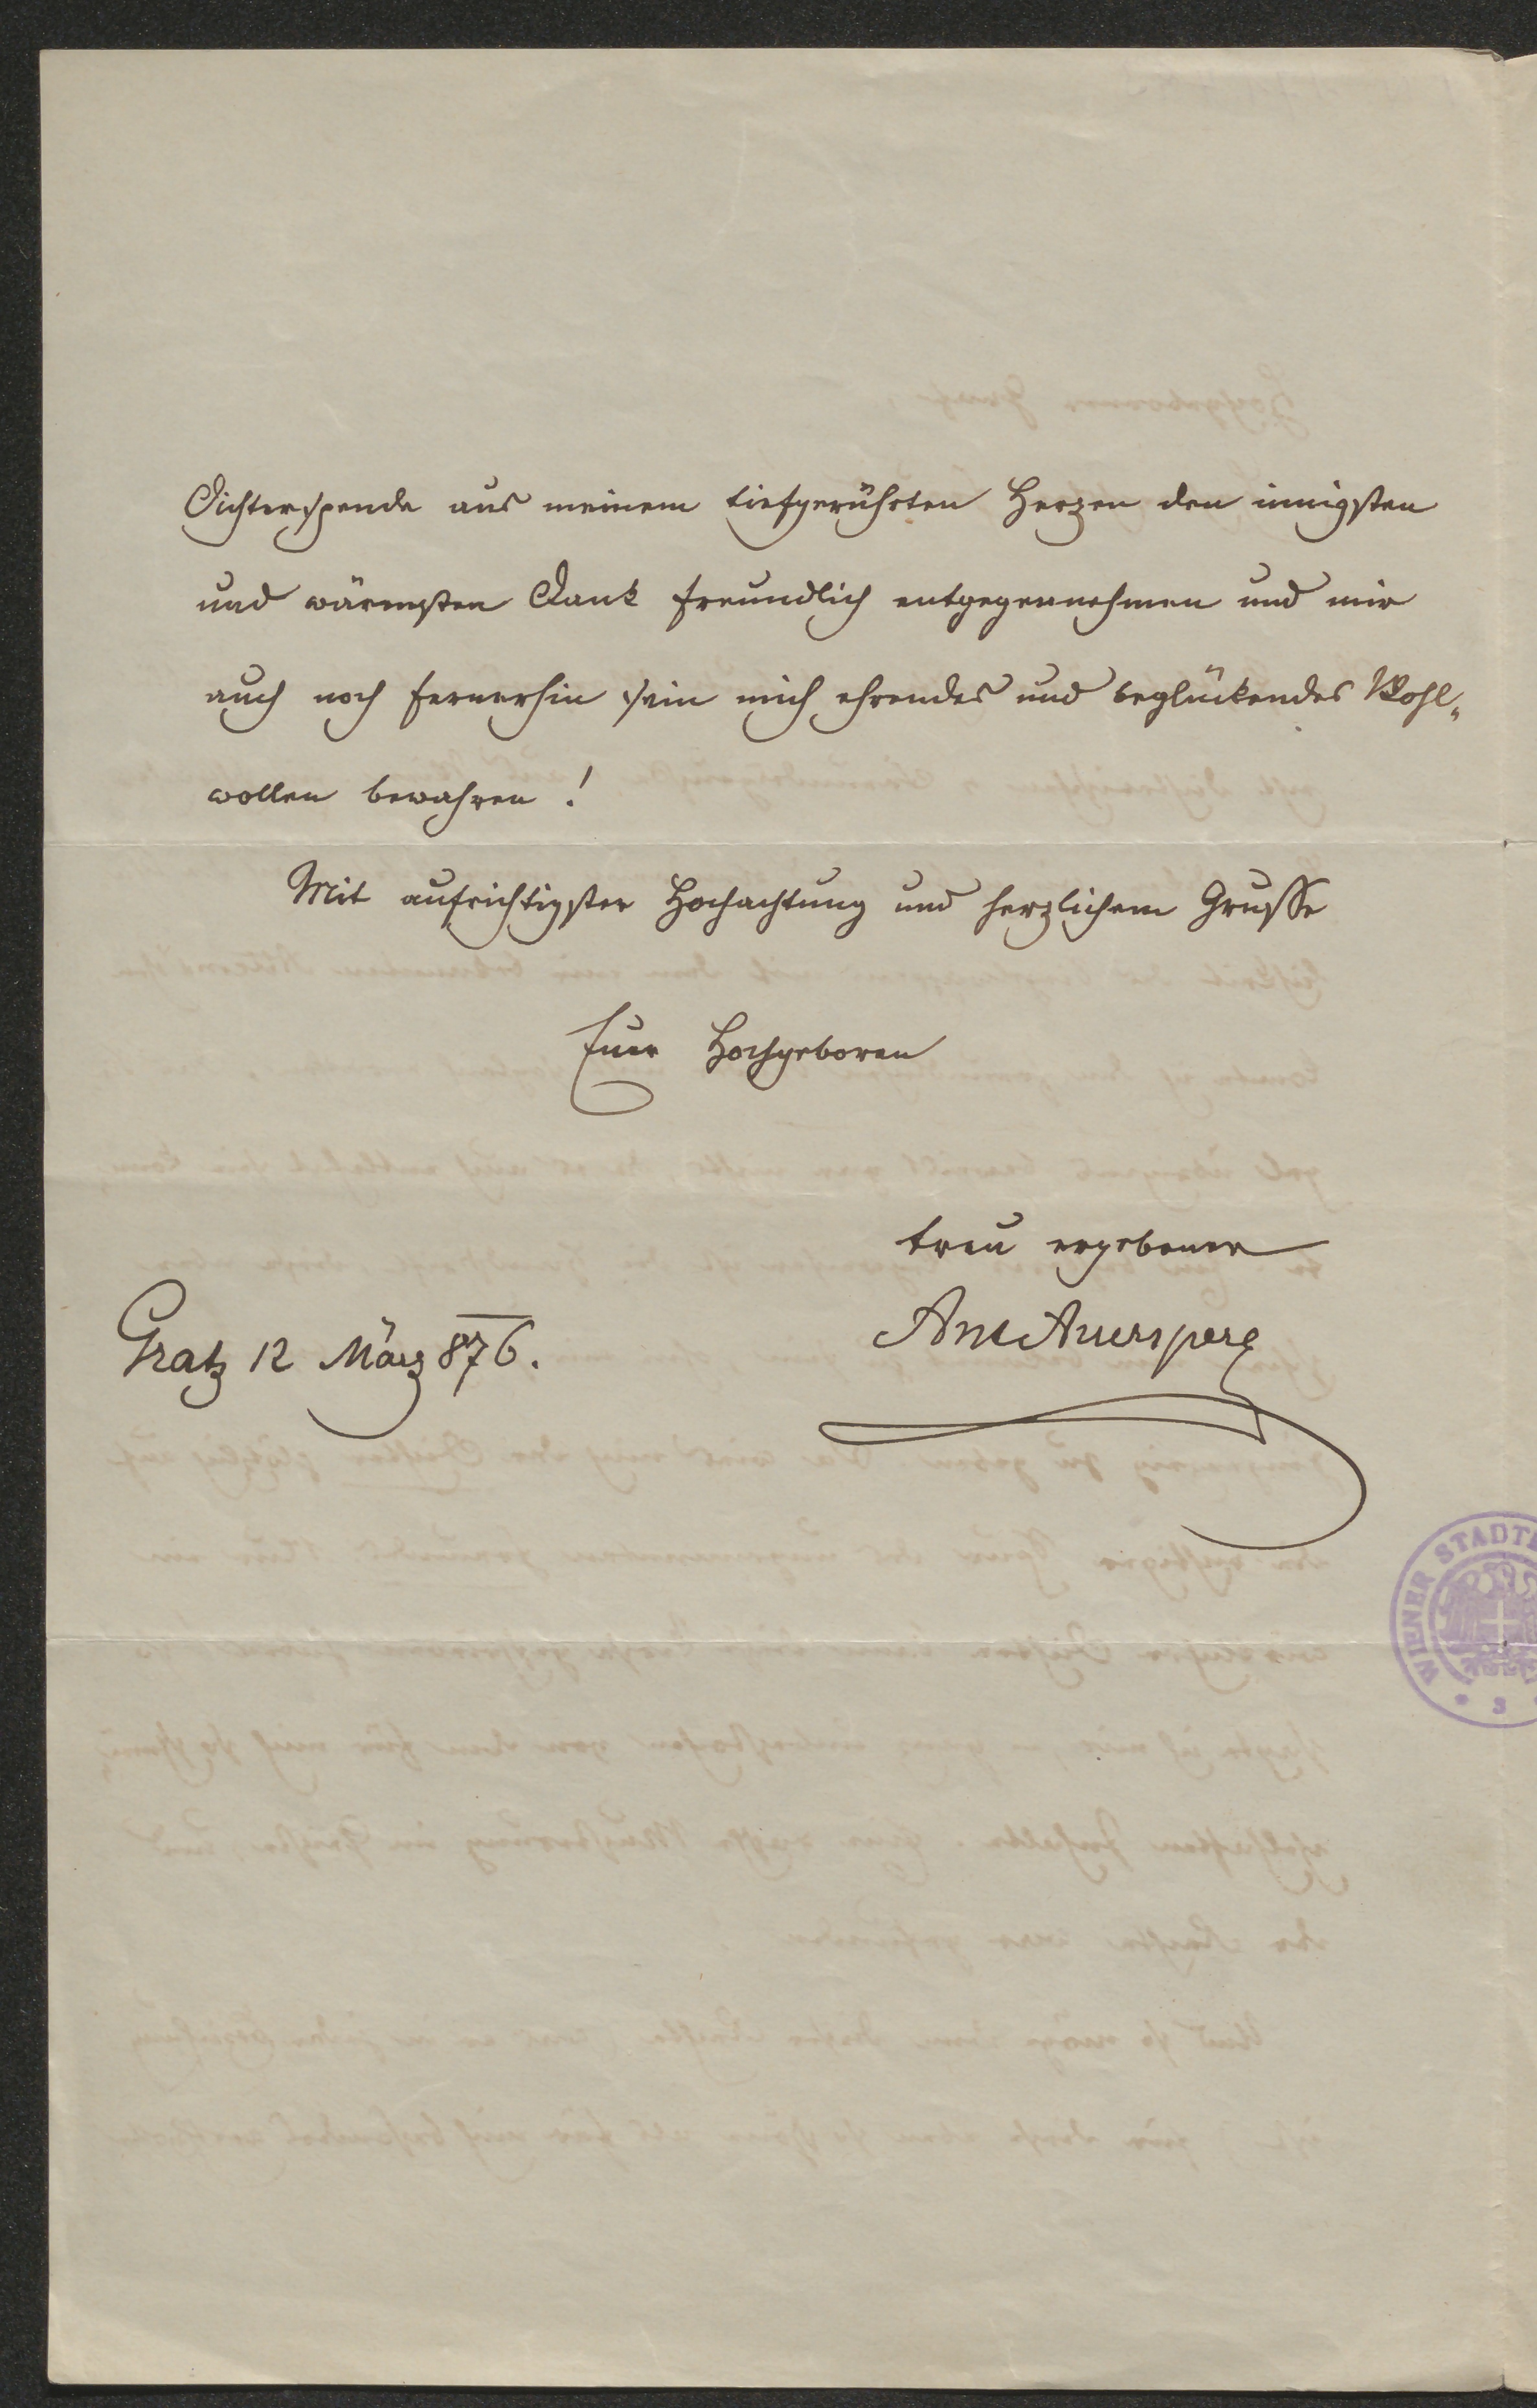 Dichterspende aus meinem tiefgerührten Herzen den innigsten
und wärmsten Dank freundlich entgegennehmen und mir
auch noch fernerhin sein mich ehrendes und beglückendes Wohl„
wollen bewahren!
Mit aufrichtigster Hochachtung und herzlichem Grusse
Euer Hochgeboren
treu ergebener
Ant Auersperg
Gratz 12 März 876.
WIENER STADT